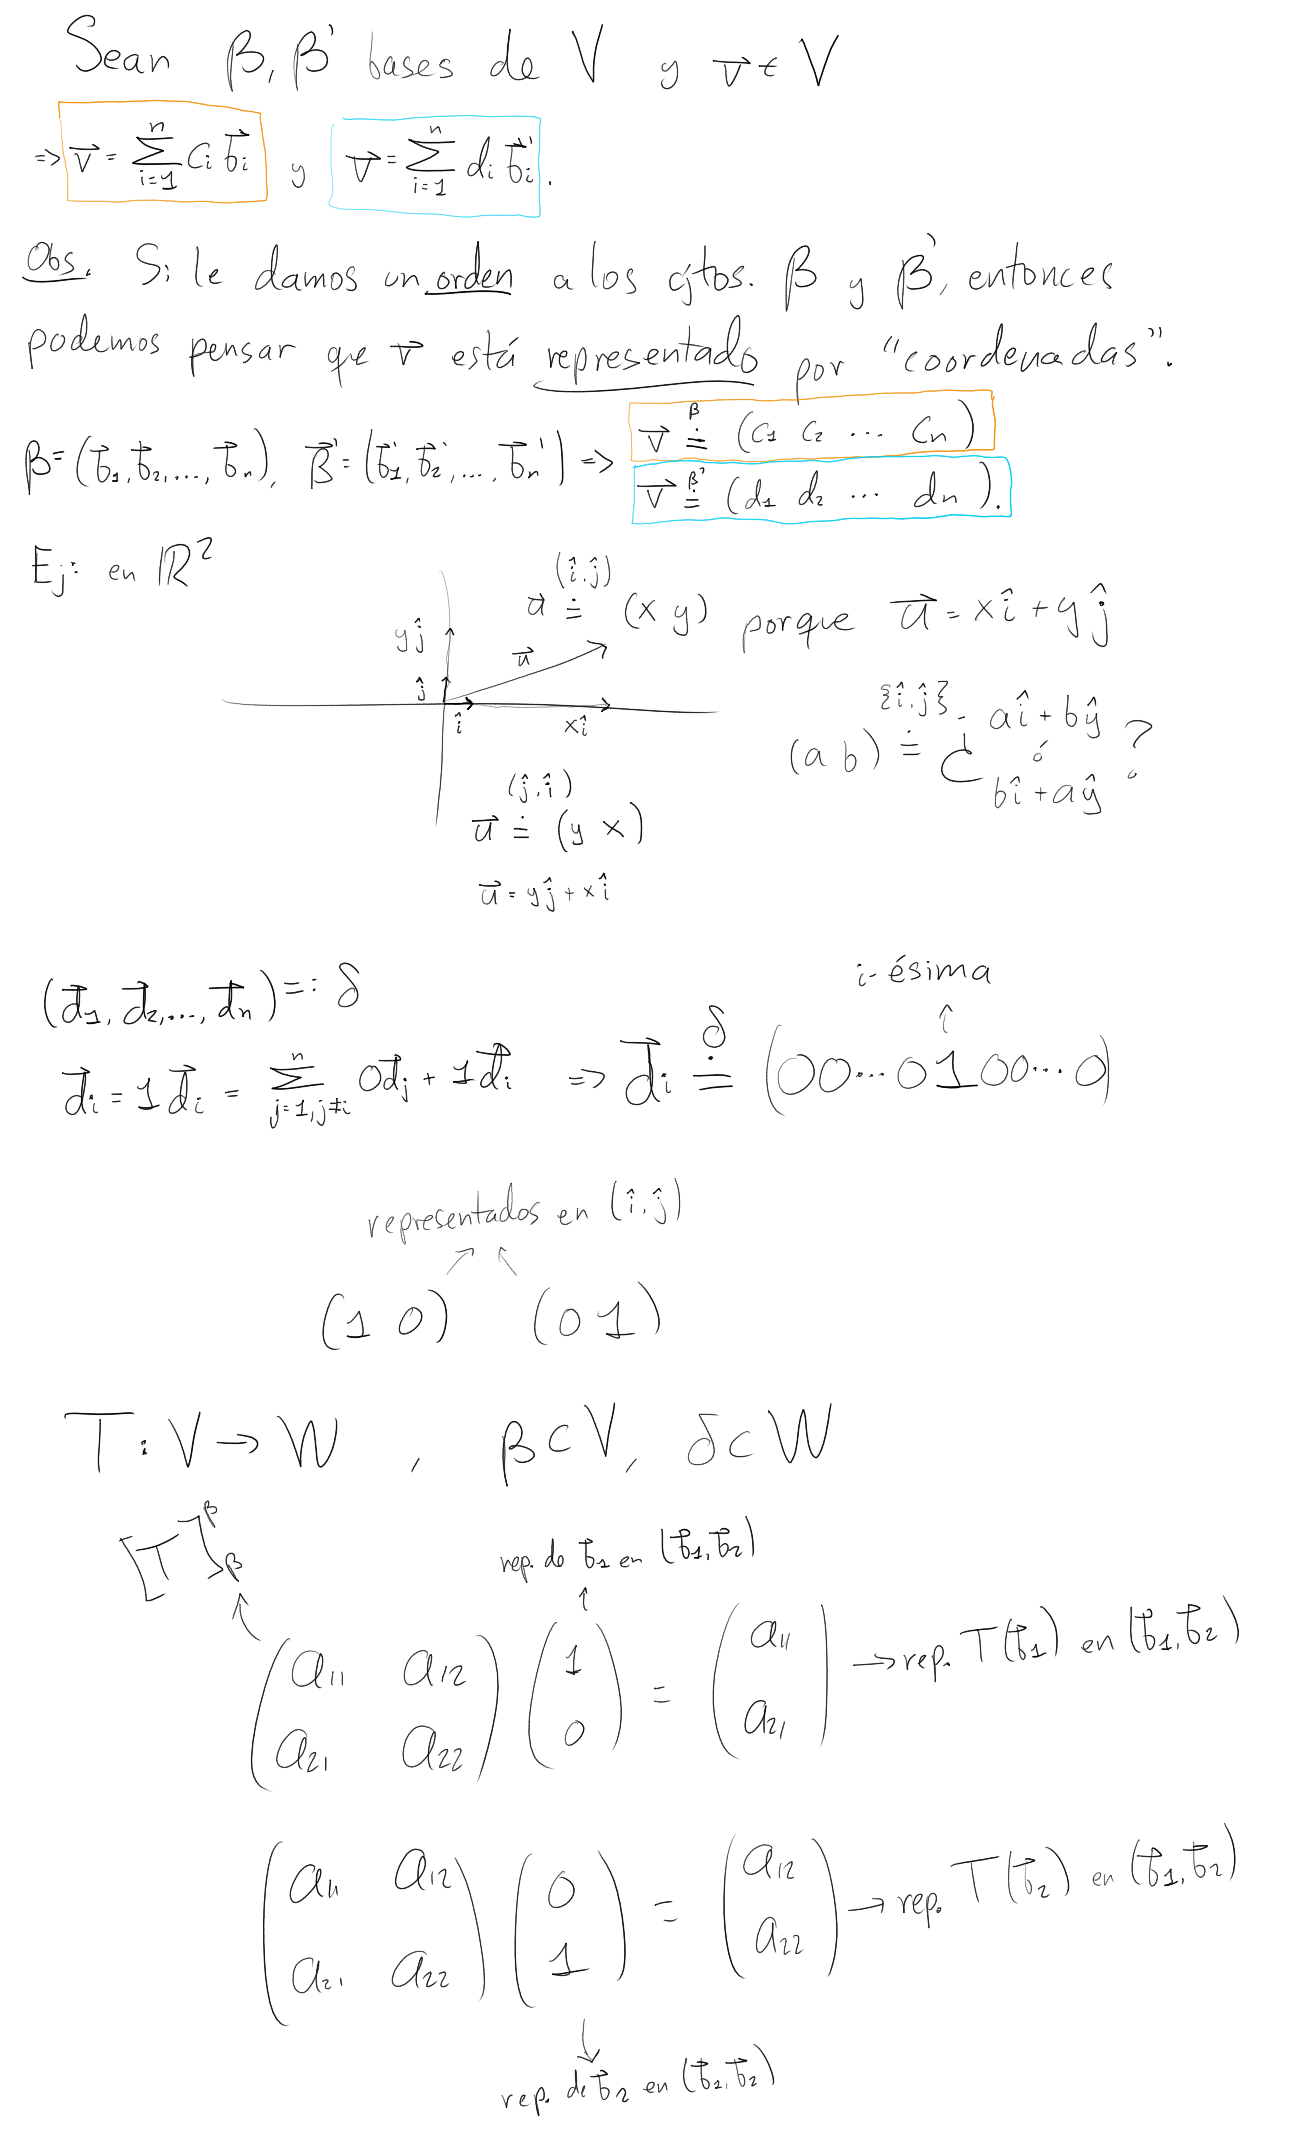 Sean β, β' bases de V y v⃗ ∈ V
⇒ v⃗ = ∑_{i=1}^{n} c_i b⃗_i y v⃗ = ∑_{i=1}^{n} d_i b⃗_i'.
Obs. Si le damos un orden a los cjtos. β y β', entonces
podemos pensar que v⃗ está representado por "coordenadas".
β = (b⃗_1, b⃗_2, ..., b⃗_n), β' = (b⃗_1', b⃗_2', ..., b⃗_n') ⇒ v⃗ ≐^β (c_1 c_2 ... c_n)
v⃗ ≐^β' (d_1 d_2 ... d_n).
Ej: en ℝ²
u⃗ ≐^(î,ĵ) (x y) porque u⃗ = xî + yĵ
yĵ
u⃗
ĵ
î
xî
(a b) ≐^{î,ĵ} ¿ aî + bŷ ó bî + aŷ ?
u⃗ ≐^(ĵ,î) (y x)
u⃗ = yĵ + xî
(d⃗_1, d⃗_2, ..., d⃗_n) =: δ
i-ésima
↑
d⃗_i = 1d⃗_i = ∑_{j=1, j≠i}^{n} 0d⃗_j + 1d⃗_i ⇒ d⃗_i ≐^δ (00...0100...0)
representados en (î,ĵ)
(1 0) (0 1)
T: V → W , β ⊂ V, δ ⊂ W
[T]_β^β
rep. de b⃗_1 en (b⃗_1, b⃗_2)
(a_11 a_12; a_21 a_22) (1; 0) = (a_11; a_21) → rep. T(b⃗_1) en (b⃗_1, b⃗_2)
(a_11 a_12; a_21 a_22) (0; 1) = (a_12; a_22) → rep. T(b⃗_2) en (b⃗_1, b⃗_2)
rep. de b⃗_2 en (b⃗_1, b⃗_2)